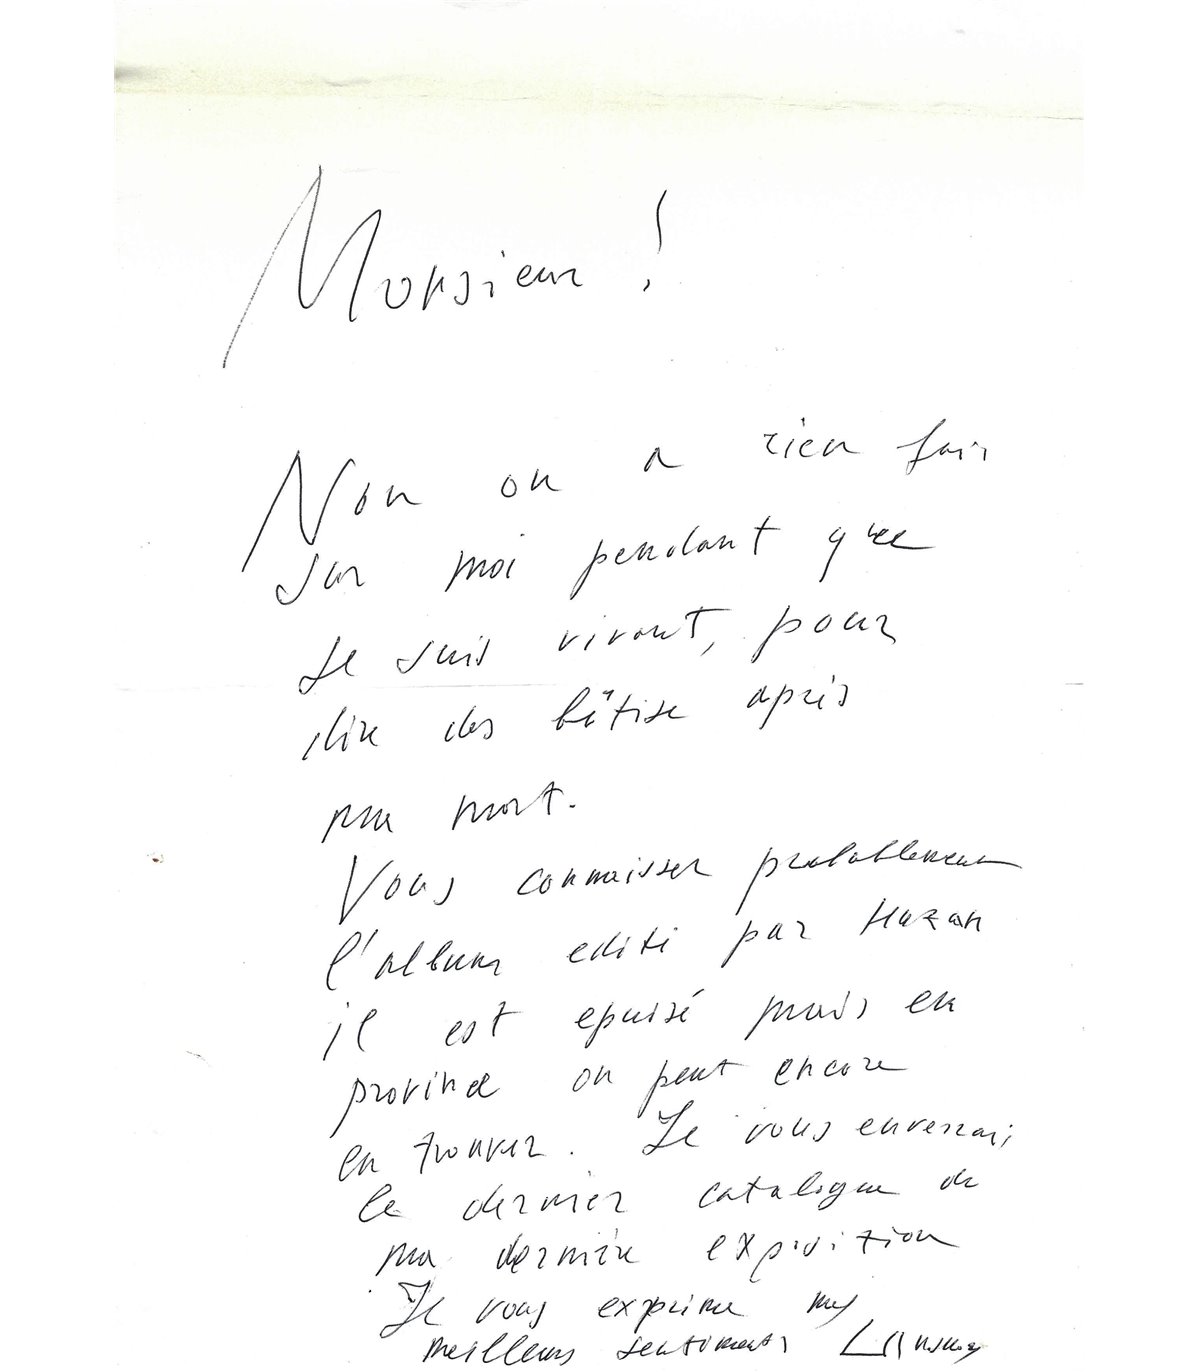 Monsieur !
Non on a rien fair
sur moi pendant que
Je suis vivant, pour
dire des bêtise après
ma mort.
Vous connaisser probablement
l'album edité par Hazan
il est epuisé mais en
province on peut encore
en trouver. Je vous enverrai
le dernier catalogue de
ma dernière exposition
Je vous exprime mes
meilleurs sentiments Lanskoy